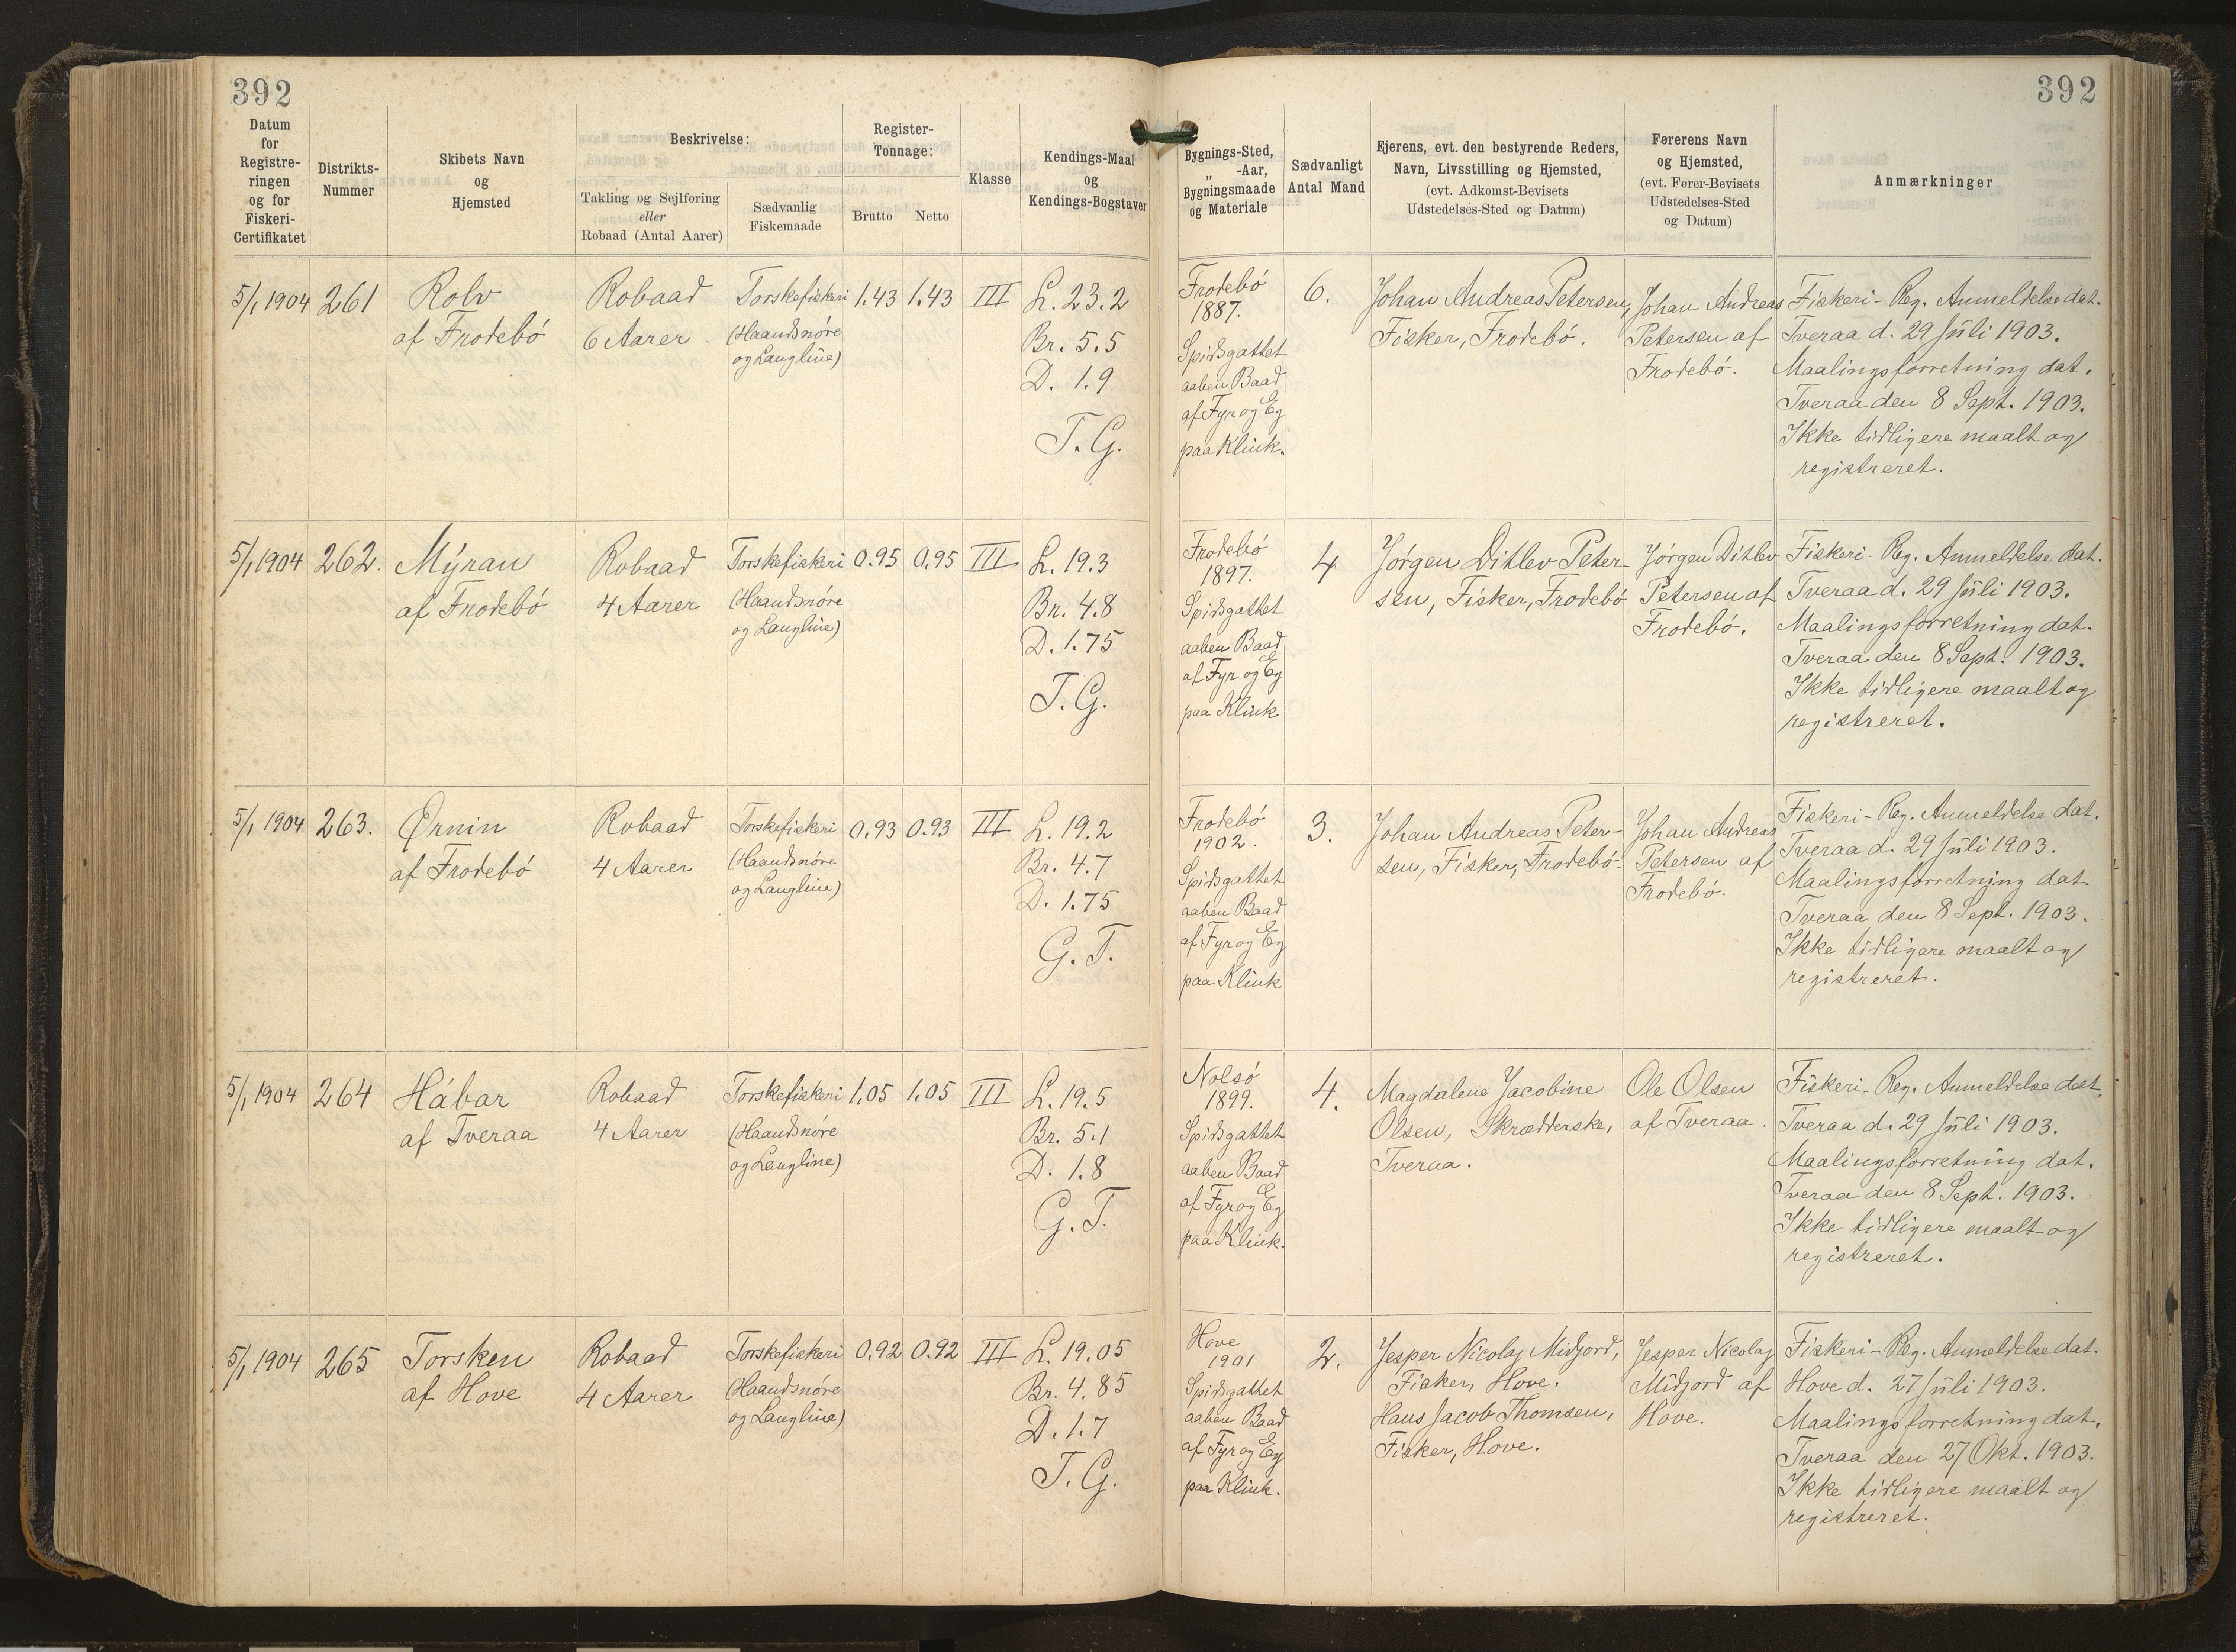 392
392
Datum
for
Registre-
ringen
og for
Fiskeri-
Certifikatet
Distrikts-
Nummer
Skibets Navn
og
Hjemsted
Beskrivelse:
Takling og Sejlføring
eller
Robaad (Antal Aarer)
Sædvanlig
Fiskemaade
Register-
Tonnage:
Brutto
Netto
Klasse
Kendings-Maal
og
Kendings-Bogstaver
Bygnings-Sted,
„ -Aar,
Bygningsmaade
og Materiale
Sædvanligt
Antal Mand
Ejerens, evt. den bestyrende Reders,
Navn, Livsstilling og Hjemsted,
(evt. Adkomst-Bevisets
Udstedelses-Sted og Datum)
Førerens Navn
og Hjemsted,
(evt. Fører-Bevisets
Udstedelses-Sted
og Datum)
Anmærkninger
5/1 1904
261
Rolv
af Frodebó
Robaad
6 Aarer
Torskefiskeri
(Haandsnóre
og Langline)
1.43
1.43
III
L. 23.2
Br. 5.5
D. 1.9
T. G.
Frodebó
1887.
Spidsgattet
aaben Baad
af Fyr og Eg
paa Klink.
6.
Johan Andreas Petersen,
Fisker, Frodebó.
Johan Andreas
Petersen af
Frodebó.
Fiskeri-Reg. Anmeldelse dat.
Tveraa d. 29 Júli 1903.
Maalingsforretning dat.
Tveraa den 8 Sept. 1903.
Ikke tidligere maalt og
registreret.
5/1 1904
262.
Mýran
af Frodebó
Robaad
4 Aarer
Torskefiskeri
(Haandsnóre
og Langline)
0.95
0.95
III
L. 19.3
Br. 4.8
D. 1.75
T. G.
Frodebó
1897.
Spidsgattet
aaben Baad
af Fyr og Eg
paa Klink
4
Jórgen Ditlev Peter-
sen, Fisker, Frodebó
Jórgen Ditlev
Petersen af
Frodebó.
Fiskeri-Reg. Anmeldelse dat.
Tveraa d. 29 Júli 1903.
Maalingsforretning dat.
Tveraa den 8 Sept. 1903.
Ikke tidligere maalt og
registreret.
5/1 1904
263.
Ørnin
af Frodebó
Robaad
4 Aarer
Torskefiskeri
(Haandsnóre
og Langline)
0.93
0.93
III
L. 19.2
Br. 4.7
D. 1.75
G. T.
Frodebó
1902.
Spidsgattet
aaben Baad
af Fyr og Eg
paa Klink
3.
Johan Andreas Peter-
sen, Fisker, Frodebó.
Johan Andreas
Petersen af
Frodebó.
Fiskeri-Reg. Anmeldelse dat.
Tveraa d. 29 Júli 1903.
Maalingsforretning dat
Tveraa den 8 Sept. 1903.
Ikke tidligere maalt og
registreret.
5/1 1904
264
Hábar
af Tveraa
Robaad
4 Aarer
Torskefiskeri
(Haandsnóre
og Langline)
1.05
1.05
III
L. 19.5
Br. 5.1
D. 1.8
G. T.
Nolsó
1899.
Spidsgattet
aaben Baad
af Fyr og Eg
paa Klink.
4.
Magdalene Jacobine
Olsen, Skrædderske,
Tveraa.
Ole Olsen
af Tveraa.
Fiskeri-Reg. Anmeldelse dat.
Tveraa d. 29 Júli 1903.
Maalingsforretning dat.
Tveraa den 8 Sept. 1903.
Ikke tidligere maalt og
registreret.
5/1 1904
265
Torsken
af Hove
Robaad
4 Aarer
Torskefiskeri
(Haandsnóre
og Langline)
0.92
0.92
III
L. 19.05
Br. 4.85
D. 1.7
T. G.
Hove
1901
Spidsgattet
aaben Baad
af Fyr og Eg
paa Klink.
2.
Jesper Nicolaj Midjord,
Fisker, Hove.
Hans Jacob Thomsen,
Fisker, Hove.
Jesper Nicolaj
Midjord af
Hove.
Fiskeri-Reg. Anmeldelse dat.
Hove d. 27 Júli 1903.
Maalingsforretning dat.
Tveraa den 27 Okt. 1903.
Ikke tidligere maalt og
registreret.